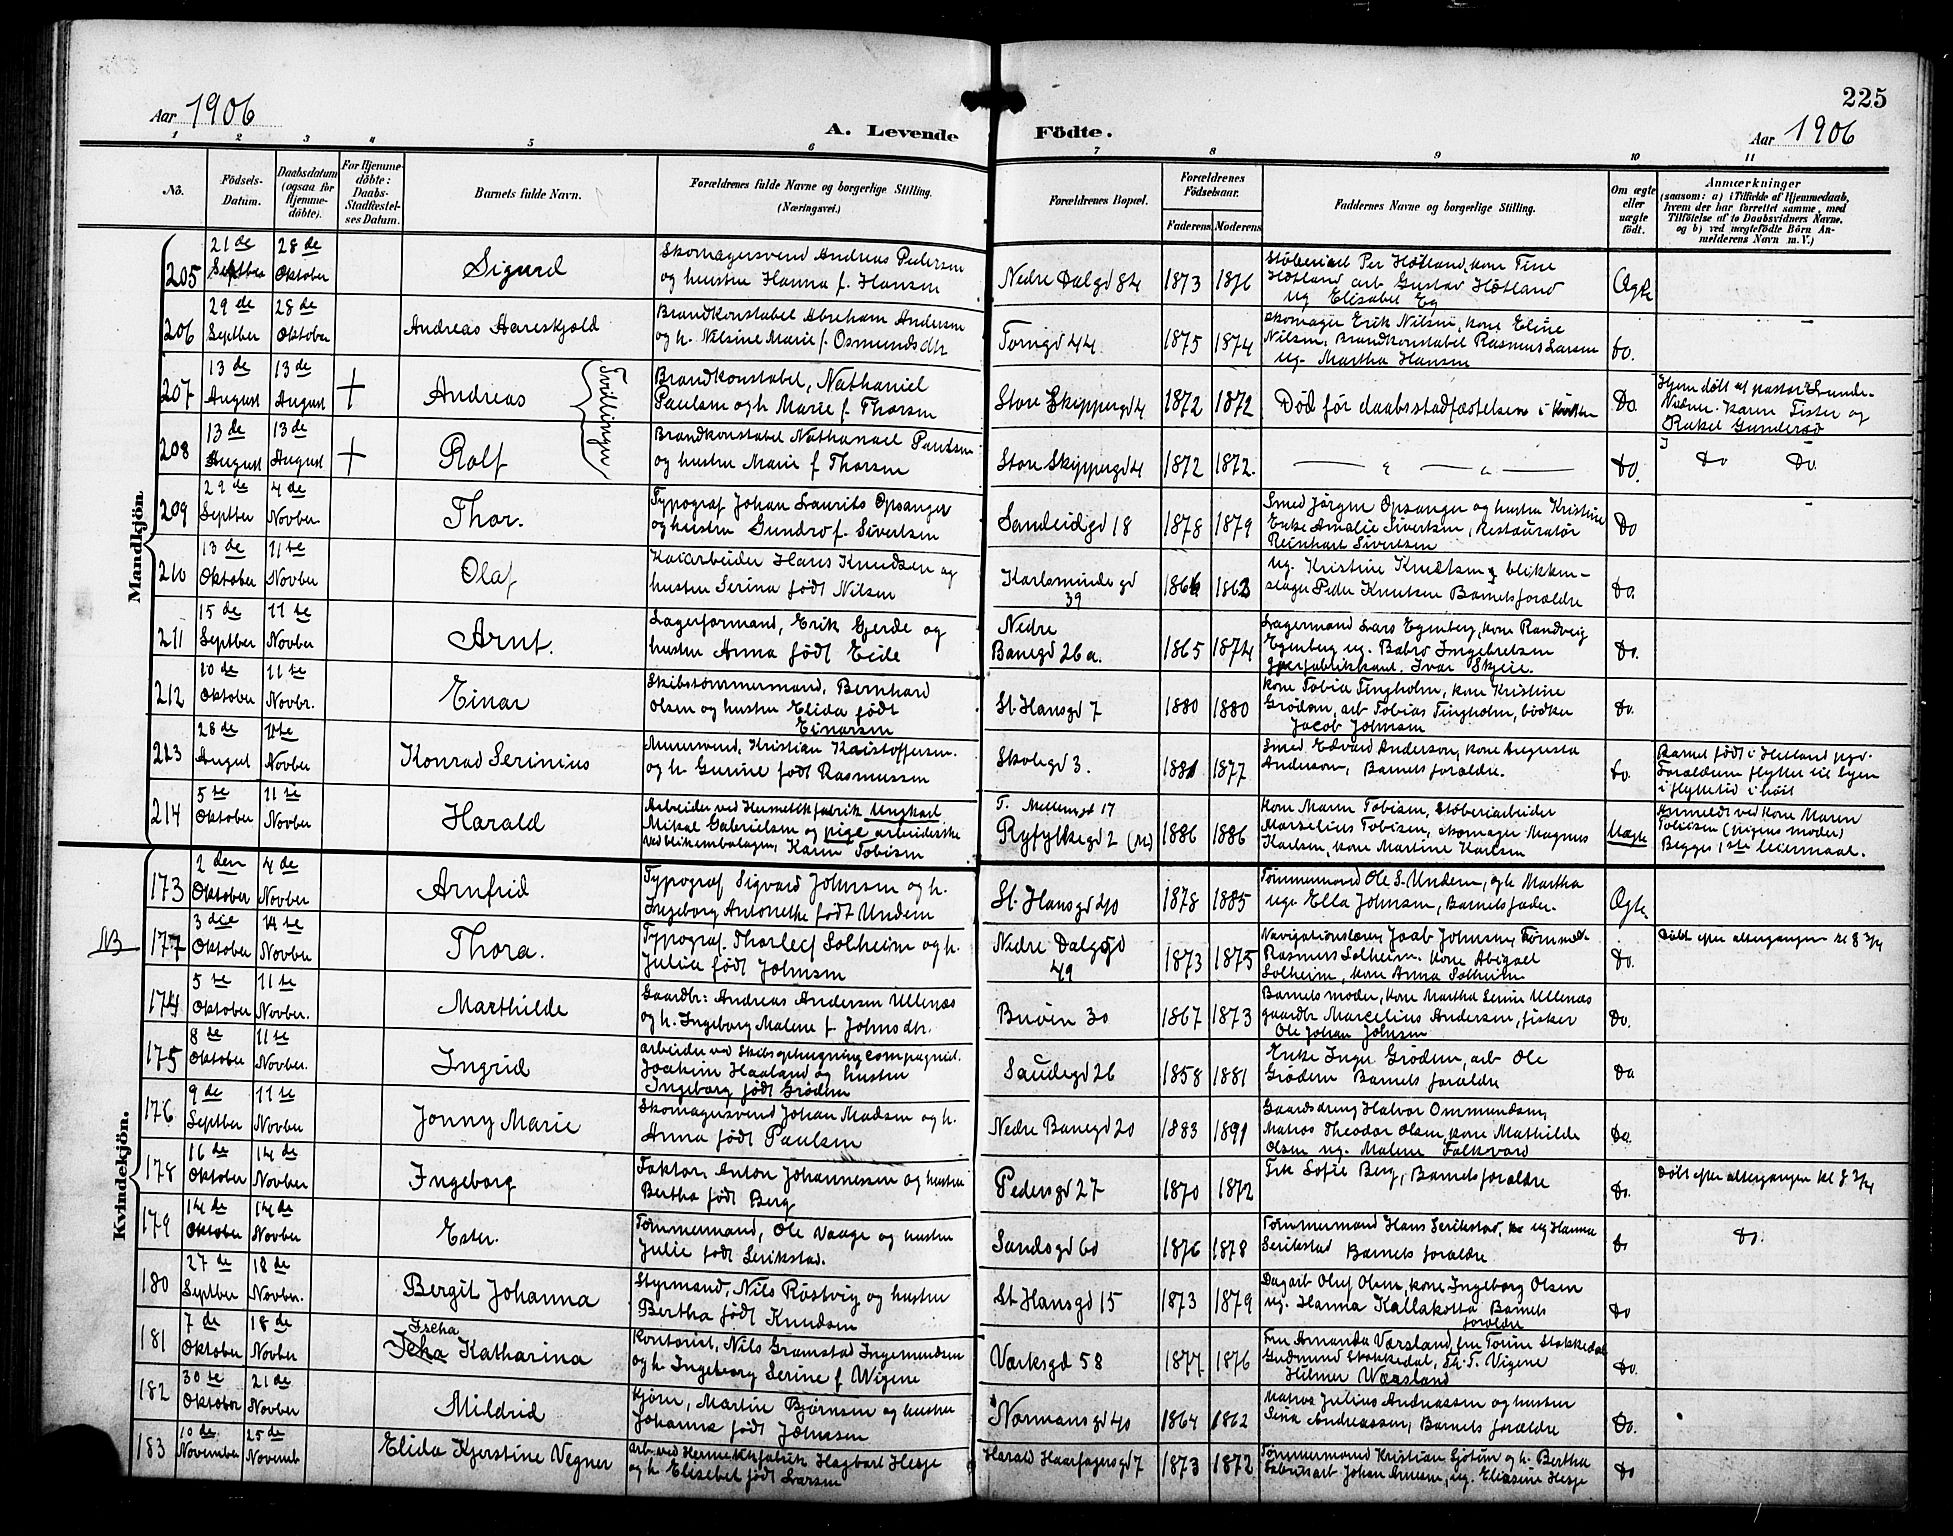 225
Aar 1906
A. Levende Födte.
Aar 1906
1 2 3 4 5 6 7 8 9 10 11
Nô.
Födsels-
Datum.
Daabsdatum
(ogsaa for
Hjemme-
döbte).
For Hjemme-
döbte:
Daabs-
Stadfæstel-
ses Datum.
Barnets fulde Navn.
Forældrenes fulde Navne og borgerlige Stilling.
(Næringsvei.)
Forældrenes Bopæl.
Forældrenes
Födselsaar.
Faderens Moderens
Faddernes Navne og borgerlige Stilling.
Om ægte
eller
uægte
födt.
Anmærkninger
(saasom: a) i Tilfælde af Hjemmedaab,
hvem der har forrettet samme, med
Tilföielse af to Daabsvidners Navne,
og b) ved uægtefödte Börn An-
melderens Navn m. V.)
Mandkjön.
205 21de Septber 28de Oktober Sigurd
Skomagersvend Andreas Pedersen
og hustru Hanna f. Hansen
Nedre Dalgd 84 1873 1876
Støberiarb Per Høtland, kone Tine
Høtland arb Gustav Høtland
ug Elisabet Eg
Ægte
206 29de Septber 28de Oktober Andreas Aareskjold
Brandkonstabel Abraham Andersen
og h. Nilsine Marie f. Osmundsdtr
Torngd 44 1875 1874
Skomager Erik Nilsen, kone Eline
Nilsen, Brandkonstabel Rasmus Larsen
ug. Martha Hansen
do.
207 13de August 13de August + Andreas
Tvillinger
Brandkonstabel, Nathaniel
Paulsen og h. Marie f. Thorsen
Store Skippergd 4 1872 1872
Död för daabsstadfæstelsen i kirken
Do.
Hjemdøbt af pastor Lunde.
Vidner. Karen Tister og
Rakel Gundersø
208 13de August 13de August + Rolf
Brandkonstabel Nathanael Paulsen
og hustru Marie f Thorsen
Store Skippergd 4 1872 1872.
Do.
Do Do.
209 29de Septber 4de Novber. Thor.
Typograf Johan Laurits Opsanger
og hustru Gundro f. Sivertsen
Sandeidgd 18 1878 1879
Smed Jørgen Opsanger og hustru Kristine
Enke Amalie Sivertsen, Restauratør
Reinhart Sivertsen
Do
210 13de Oktober 11te Novber Olaf
Kaiarbeider Hans Knudsen og
hustru Serina født Nilsen
Karlsminde gd
39
1866 1863
ug. Kristine Knutsen, blikken-
slager Peder Knutsen Barnets forældre
Do.
211 15de Septber 11te Novber Arnt.
Lagerformand, Erik Gjerde og
hustru Anna født Eide
Nedre
Banegd 26a.
1865 1874
Lagermand Lars Egenberg, kone Randveig
Egenberg ug. Babro Ingebretsen
Ivar Skjeie.
Do.
212 10de Oktober 11te Novbr. Einar
Skibstømmermand, Bernhard
Olsen og hustru Elida født
Einarsen
St. Hansgd 7 1880 1880
kone Tobia Tingholm, kone Kristine
Grødem, arb Tobias Tingholm, bødker
Jacob Johnsen
Do.
213 28de August Novber Konrad Serinius
Murersvend, Kristian Kristoffersen.
og h. Gurine født Rasmussen
Skolegd 3. 1881 1877
Smed Edvard Anderson, kone Augusta
Anderson, Barnets forældre.
Do.
Barnet født i Hetland pgd.
Forældrene flyttet til byen
i flyttetid i høst
214 5te Oktober 11te Novber Harald
Arbeider ved Hermetikfabrik Ungkarl
Mikal Gabrielsen og pige arbeiderske
ved blikemballagen, Karen Tobisen
F. Møllemgd 17
Ryfylkegd 2 (M) 1886 1886
kone Maren Tobisen, Støberiarbeider
Marselius Tobisen, skomager Magnus
Karlsen, kone Martine Karlsen
Uægte
Anmeldt ved kone Maren
Tobisen (pigens moder)
Begges 1ste leiermaal.
Kvindekjön.
173 2den Oktober 4de Novber Arnfrid
Typograf Sigvard Johnsen og h.
Ingeborg Antonette født Undem
St. Hansgd 40 1878 1885
Tømmermand Ole S. Undem, og h Martha
ug. Ella Johnsen, Barnets fader.
Ægte
NB
177 3die Oktober 14te Novber Thora.
Typograf. Thorleif Solheim og h.
Julia født Johnsen
Nedre Dalgd
49
1873 1875
Navigationslærer, Joab Johnsen, Tømmerm
Rasmus Solheim. kone Abigael
Solheim, kone Anna Solheim
Do.
Døbt efter altergangen kl 8 3/4
174 5te Oktober 11te Novber. Marthilde
Gaardbr: Andreas Andersen Ullenæs
og h. Ingeborg Malene f. Johnsdtr.
Buøen 30 1867 1873
Barnets moder, kone Martha Serine Ullenæs
gaardbr Marcelius Andersen, fisker
Ole Johan Johnsen
Do.
175 8de Oktober 11te Novber. Ingrid
arbeider ved Skibsophugningscompagniet.
Joakim Haaland og hustru
Ingeborg født Grødem
Saudegd 26 1858 1881
Enke Inger Grødem, arb Ole
Grødem Barnets forældre
Do
176 9de Septber 11te Novber Jonny Marie
Skomagersvend Johan Madsen og h.
Anna født Paulsen
Nedre Banegd 20 1883 1891
Gaardsdreng Halvor Ommundsen,
Matros Theodor Olsen, kone Mathilde
Olsen ug. Malene Falkvard
Do.
178 16de Oktober 14de Novber Ingeborg
Faktor, Anton Johannessen og hustru
Bertha født Berg
Pedersgd 27 1870 1872
Frk Sofie Berg, Barnets forældre
Do.
Døbt efter altergangen kl 8 3/4
179 14de Oktober 14de Novber Ester.
Tømmermand, Ole Vaage og hustru
Julie født Serikstad.
Sandsgd 60 1876 1878
Tømmermand Hans Serikstad, ug Hanna
Serikstad Barnets forældre.
Do
Do.
180 27de Septber 18de Novber. Bergit Johanna
Styrmand, Nils Røstvig og hustru
Bertha født Knudsen
St Hansgd 15 1873 1879
Dagarb Oluf Olsen, kone Ingeborg Olsen
ug. Hanna Kallakotta Barnets
forældre
Do
181 7de Oktober 18de Novber Iseha
Katharina
Kontorist, Nils Gramstad Ingemundsen
og h. Ingeborg Serine f Wigene
Værksgd 58 1877 1876
Fru Amanda Værsland, fru Tomine Stokkedal
Gudmund Stokkedal, Th. T. Vigene
Hilmer Wærsland
Do.
182 30te Oktober 21de Novber Mildrid
Kjøm, Martin Bjørnsen og hustru
Johanna født Johnsen
Normansgd 40 1864 1862
Matros Julius Andreassen og hustru
Sina Andreassen, Barnets forældre
Do.
183 10de November 25de Novemb Elida Kjerstine Vegner
arb. ved Hermetikfabrik Hagbart Hesje
og h. Elisebet født Larsen
Harald Haarfagersgd 7 1873 1872
Tømmermand Kristian Gjøtun og h. Bertha
Fabrikarb Johan Arnesen, ug. Eliasine Hesje
Do